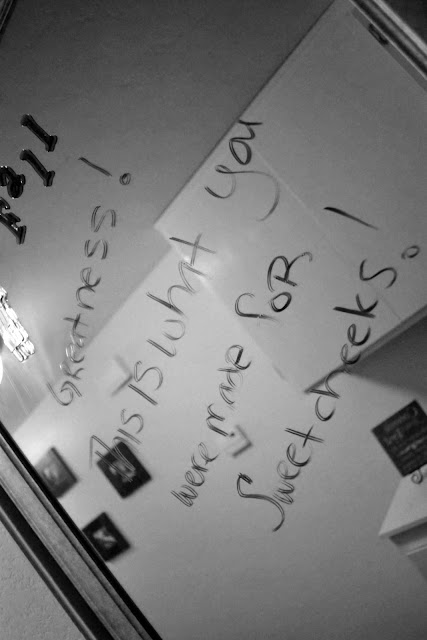 Greatness!
This is what you
were made for
Sweetcheeks!